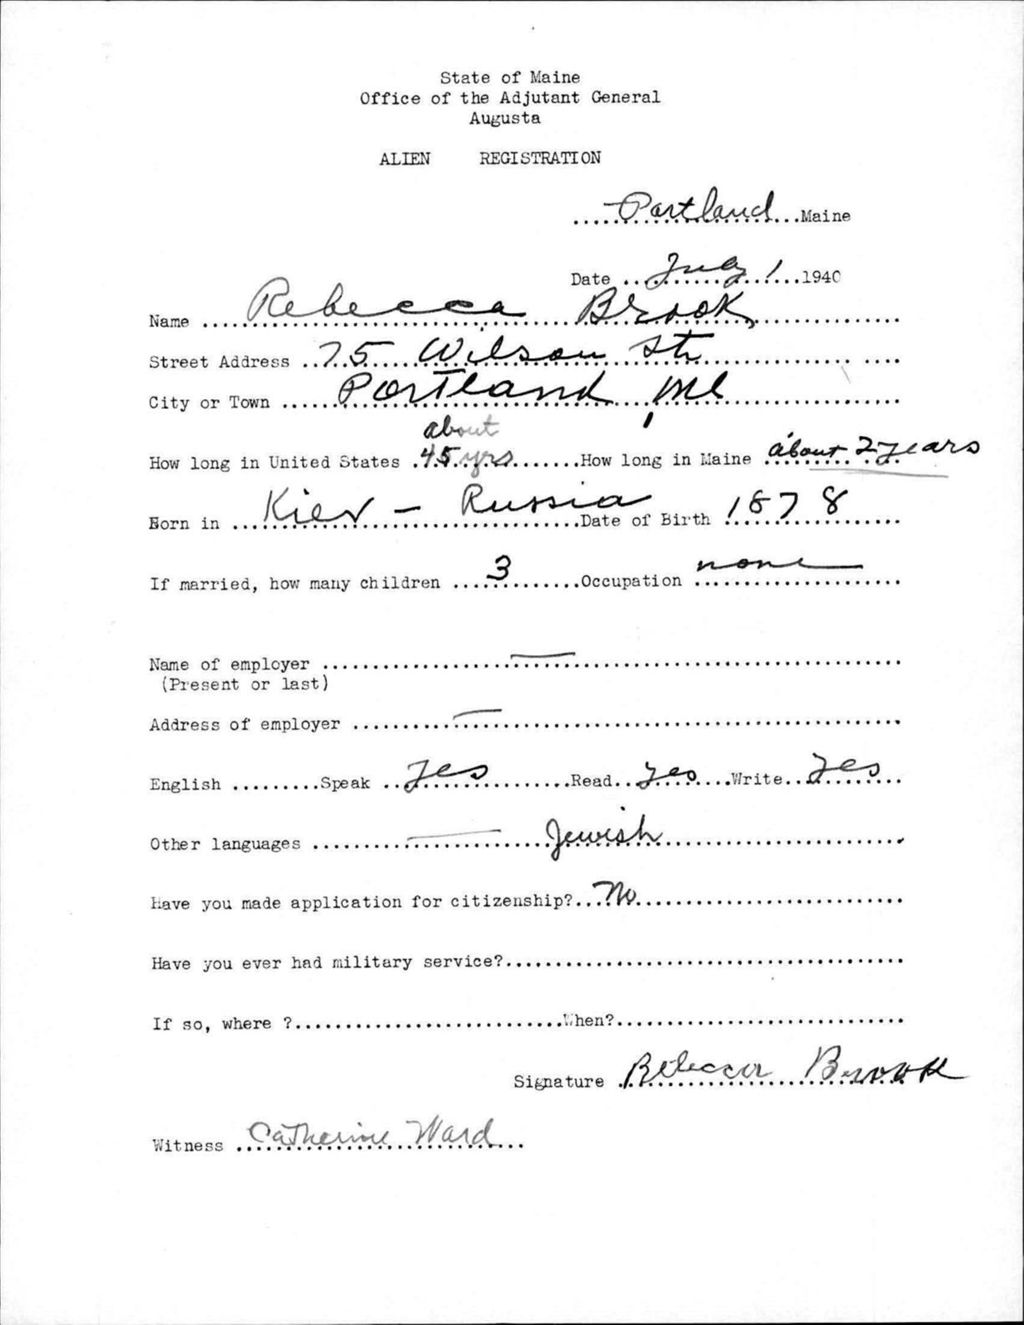 State of Maine
Office of the Adjutant General
Augusta
ALIEN REGISTRATION
Portland Maine
Date July 1 1940
Name Rebecca Brook
Street Address 75 Wilson St.
City or Town Portland, Me
about
How long in United States 45 yrs How long in Maine about 2 years
Born in Kiev - Russia Date of Birth 1878
If married, how many children 3 Occupation none
Name of employer —
(Present or last)
Address of employer —
English Speak Yes Read Yes Write Yes
Other languages — Jewish
Have you made application for citizenship? No
Have you ever had military service?
If so, where ? When?
Signature Rebecca Brook
Witness Catherine Ward